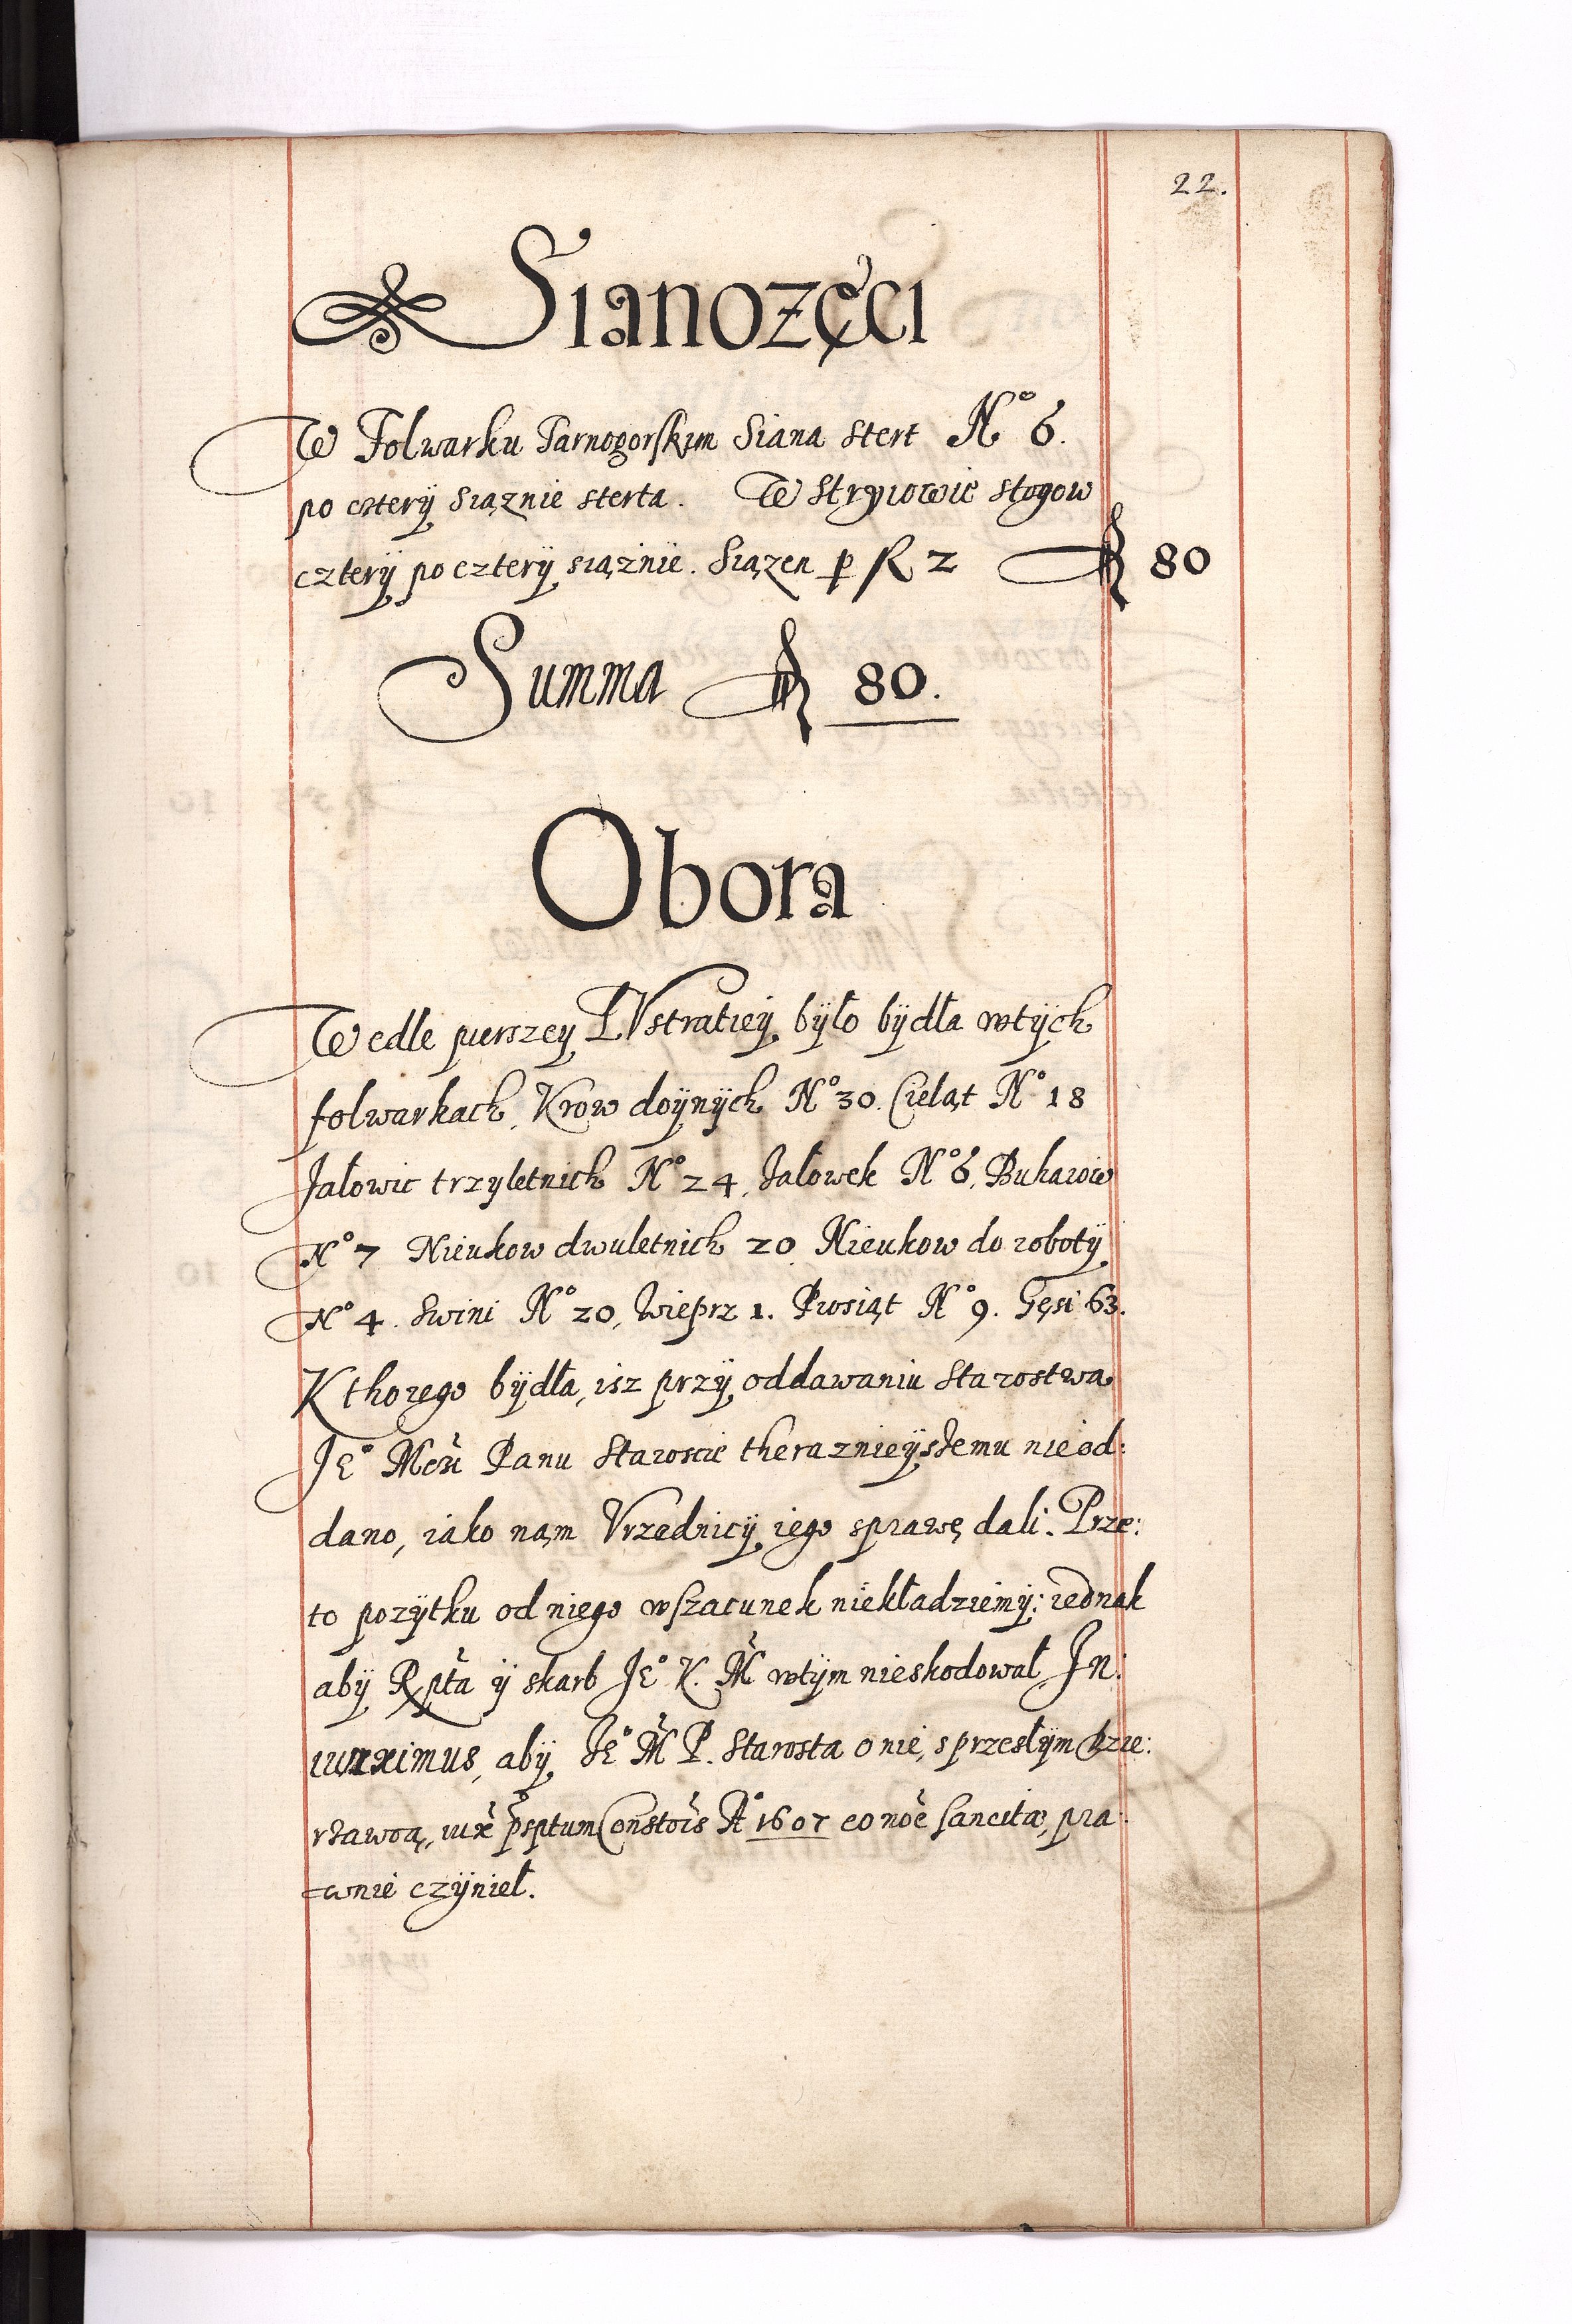 22.
Sianozęci
W Folwarku Tarnogorskim Siana stert N° 6.
po cztery siąznie sterta. W Stryiowie stogow
cztery po cztery siąznie. Siązen p 2 80
Summa 80.
Obora
Wedle pierszey LVstratiey było bydła wtych
folwarkach, Krow doynych N° 30. Cieląt N° 18
Jałowic trzyletnich N° 24, Jałowek N° 6, Bukatow
N° 7 Nieukow dwuletnich 20 Nieukow do roboty
N° 4. Swini N° 20, Wieprz 1. Prosiąt N° 9. Gęsi 63.
Kthorego bydła, isz przy oddawaniu Starostwa
Je° Mci Panu Staroscie theraznieyszemu nie od:
dano, iako nąm Vrzednicy iego sprawę dali. Prze:
to pozytku od niego wszacunek niekładziemy: iednak
aby Rpta y skarb Je° K. M wtym nieskodował Jn:
iunximus, aby Je° M P. Starosta o nie, s przesłym Dzie:
rzawcą, iux psptum Constois A° 1607 eo noe sancitæ, pra:
=wnie czynieł.